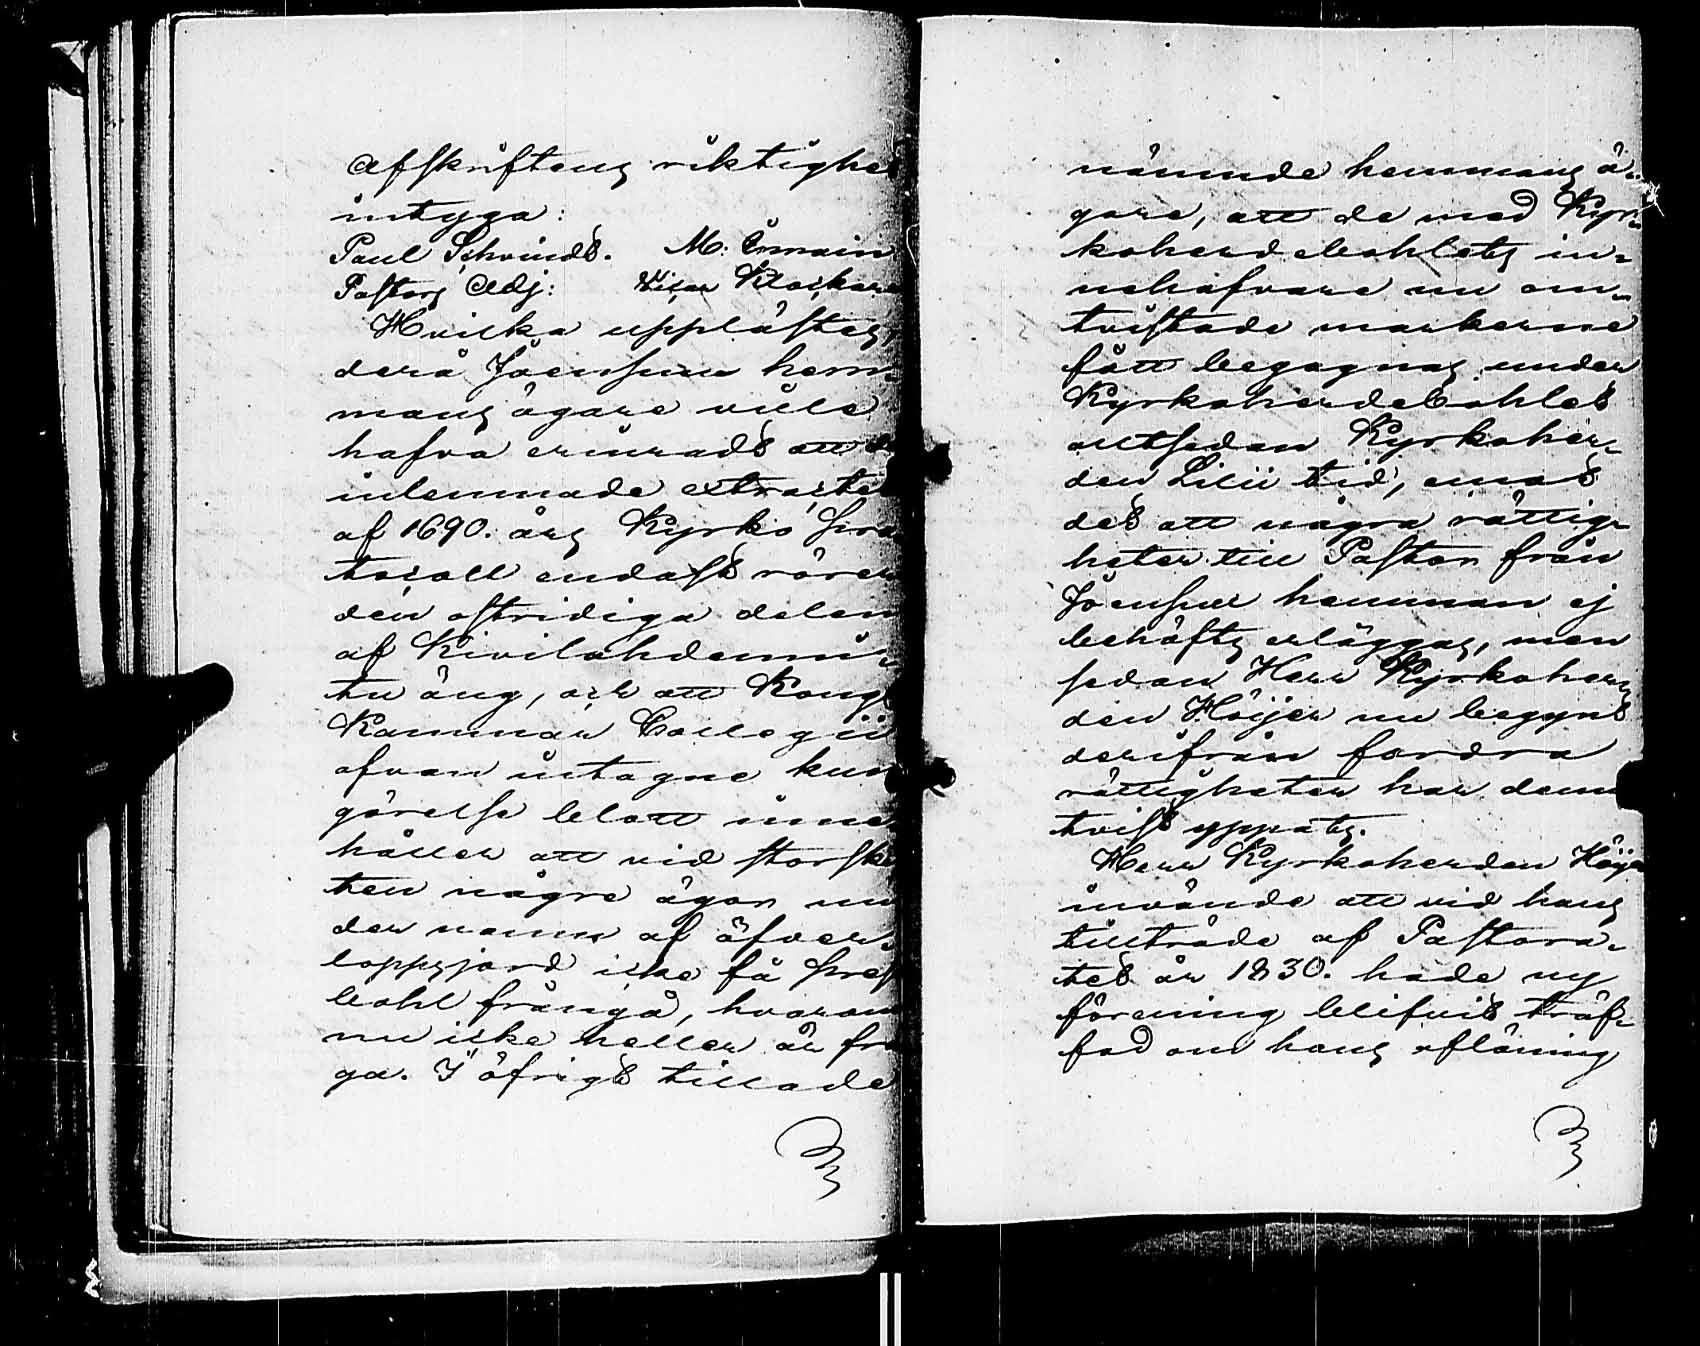 Afskriftens riktighet
intyga:
Paul Schvindt. M: Önnain
Pastors Adj: Vice Klockare
Hvilka upplästes,
derå Joensuu hem-
mans ägare ville
hafva erinradt att de
inlemnade extractet
af 1690. års Kyrko pro
tocoll endast rörer
den ostridiga delen
af Kivilahdennii-
tu äng, och att Kongl
Kammar Collegii
ofvan intagne kun
görelse blott inne
håller att vid storskif
ten någre ägor un
der namn af öfver-
loppsjord icke få prest
bohl frångå, hvarom
nu icke heller är frå
ga. I öfrigt tillade
nämnde hemmans ä-
gare, att de med Kyr-
koherdebohlets in-
nehafvare nu om-
tvistade markerne
fått begagnas under
Kyrkoherdebohlet
alltsedan Kyrkoher-
den Lilii tid, emot
det att några rättig-
heter till Pastor från
Joensuu hemman ej
behöfts erläggas, men
sedan Herr Kyrkoher-
den Höijer nu begynt
derifrån fordra
rättigheter har denna
tvist yppats.
Herr Kyrkoherden Höijer
invände att vid hans
tillträde af Pastora-
tet år 1830. hade ny
förening blifvit träf-
fad om hans aflöning